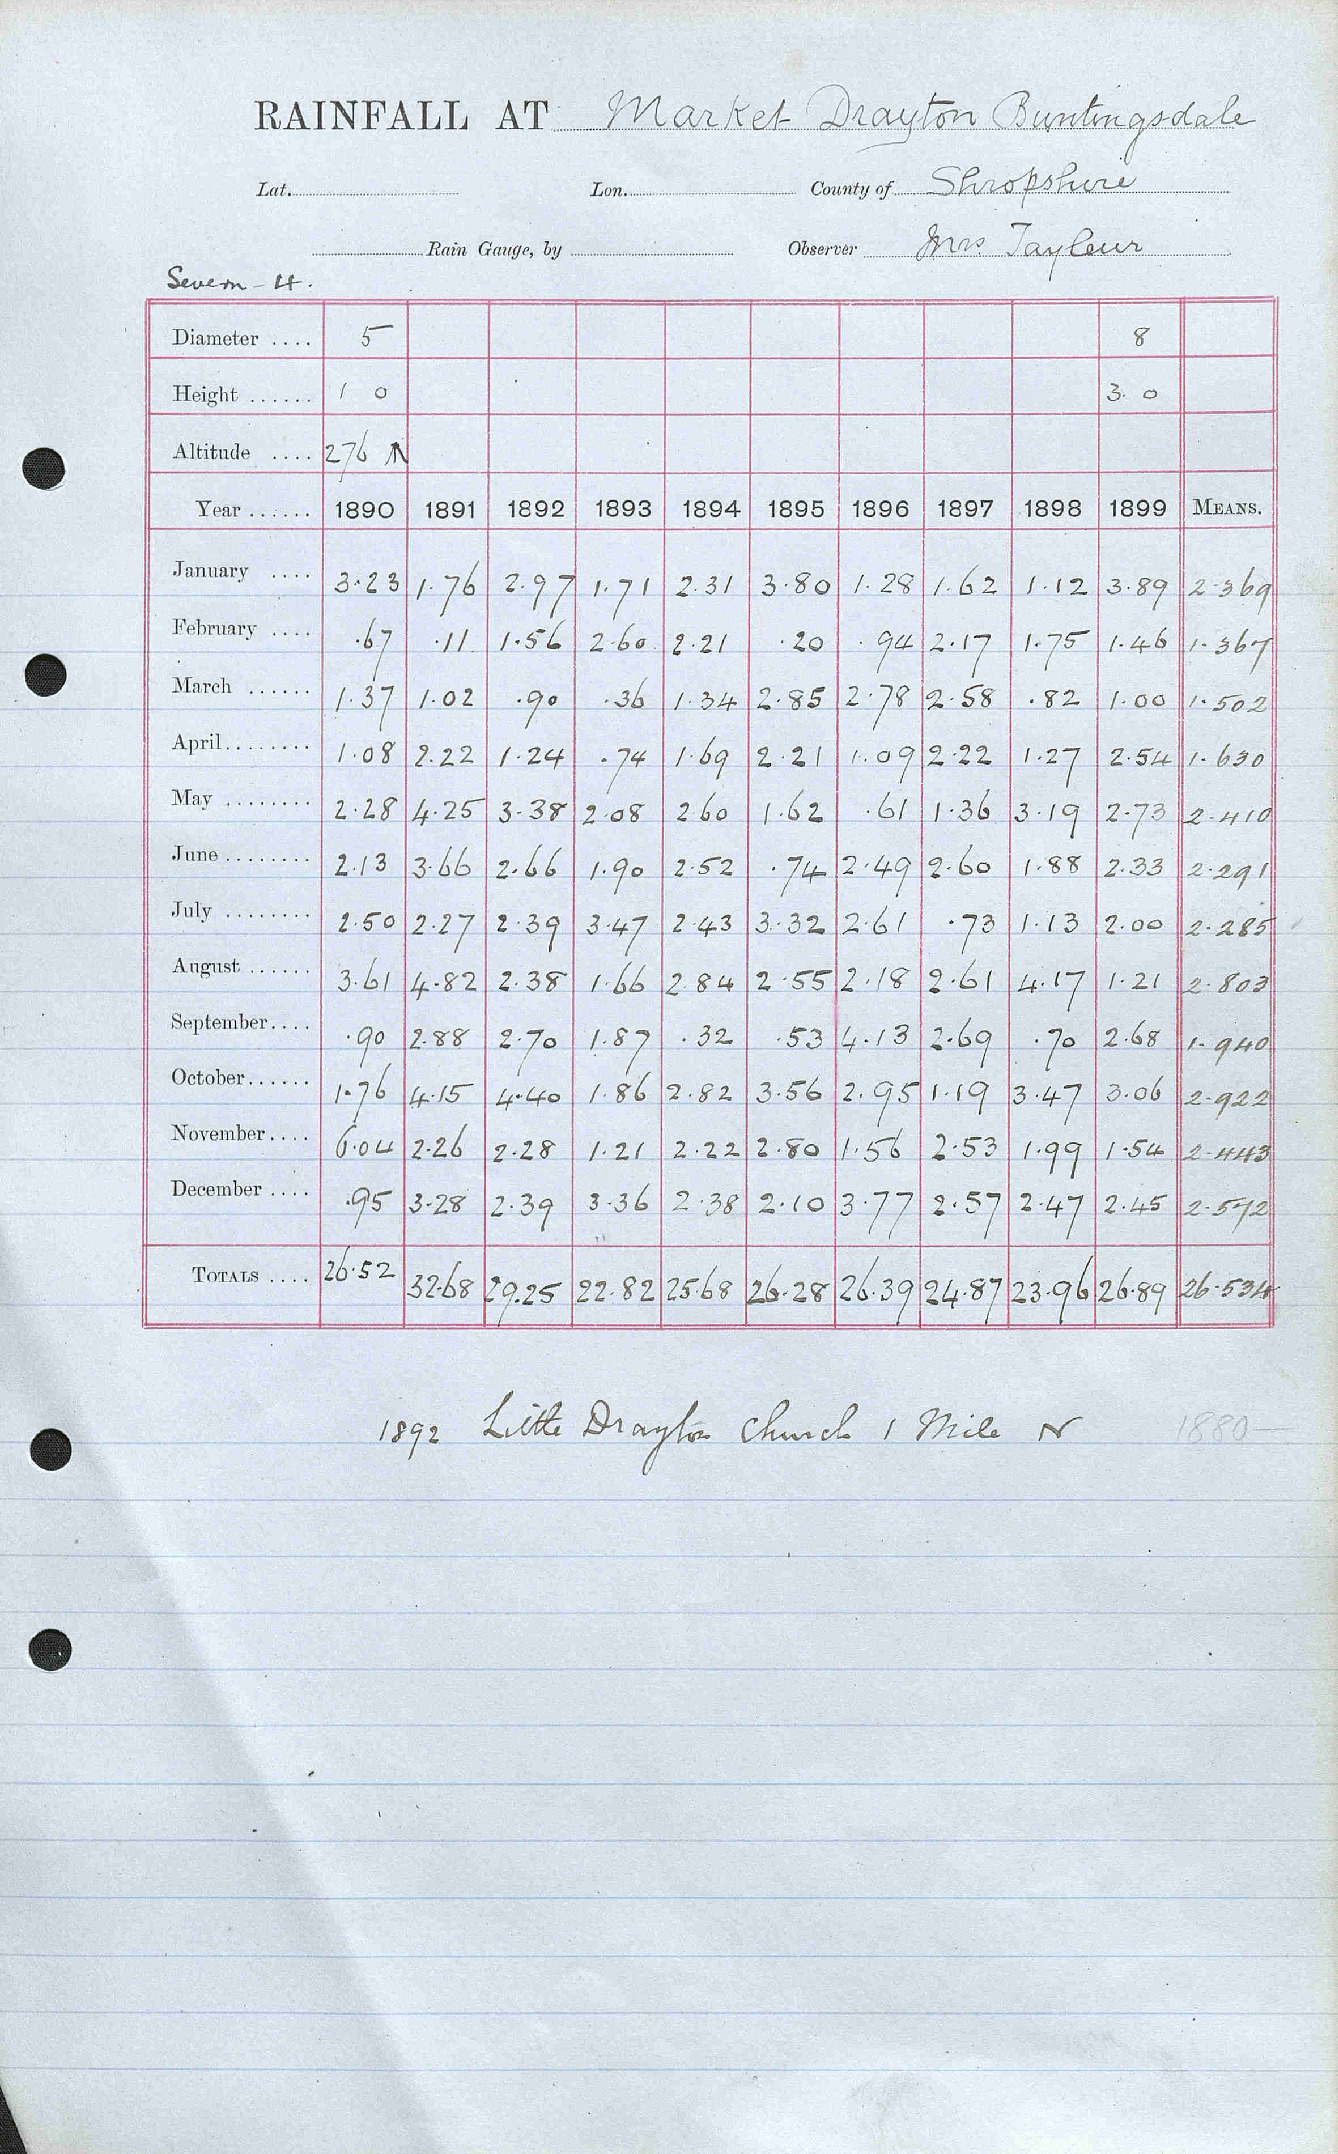 RAINFALL AT Market Drayton Buntingsdale
Lat. Lon. County of Shropshire
Rain Gauge, by Observer Mrs Tayleur
Severn - 4.
Diameter .... 5 8
Height ...... 1 0 3. 0
Altitude .... 276
Year ...... 1890 1891 1892 1893 1894 1895 1896 1897 1898 1899 MEANS.
January .... 3.23 1.76 2.97 1.71 2.31 3.80 1.28 1.62 1.12 3.89 2.369
February .... .67 .11 1.56 2.60 2.21 .20 .94 2.17 1.75 1.46 1.367
March ...... 1.37 1.02 .90 .36 1.34 2.85 2.78 2.58 .82 1.00 1.502
April........ 1.08 2.22 1.24 .74 1.69 2.21 1.09 2.22 1.27 2.54 1.630
May ........ 2.28 4.25 3.38 2.08 2.60 1.62 .61 1.36 3.19 2.73 2.410
June ........ 2.13 3.66 2.66 1.90 2.52 .74 2.49 2.60 1.88 2.33 2.291
July ........ 2.50 2.27 2.39 3.47 2.43 3.32 2.61 .73 1.13 2.00 2.285
August ...... 3.61 4.82 2.38 1.66 2.84 2.55 2.18 2.61 4.17 1.21 2.803
September.... .90 2.88 2.70 1.87 .32 .53 4.13 2.69 .70 2.68 1.940
October...... 1.76 4.15 4.40 1.86 2.82 3.56 2.95 1.19 3.47 3.06 2.922
November.... 6.04 2.26 2.28 1.21 2.22 2.80 1.56 2.53 1.99 1.54 2.443
December .... .95 3.28 2.39 3.36 2.38 2.10 3.77 2.57 2.47 2.45 2.572
TOTALS .... 26.52 32.68 29.25 22.82 25.68 26.28 26.39 24.87 23.96 26.89 26.534
1892 Little Drayton Church 1 Mile N 1880—